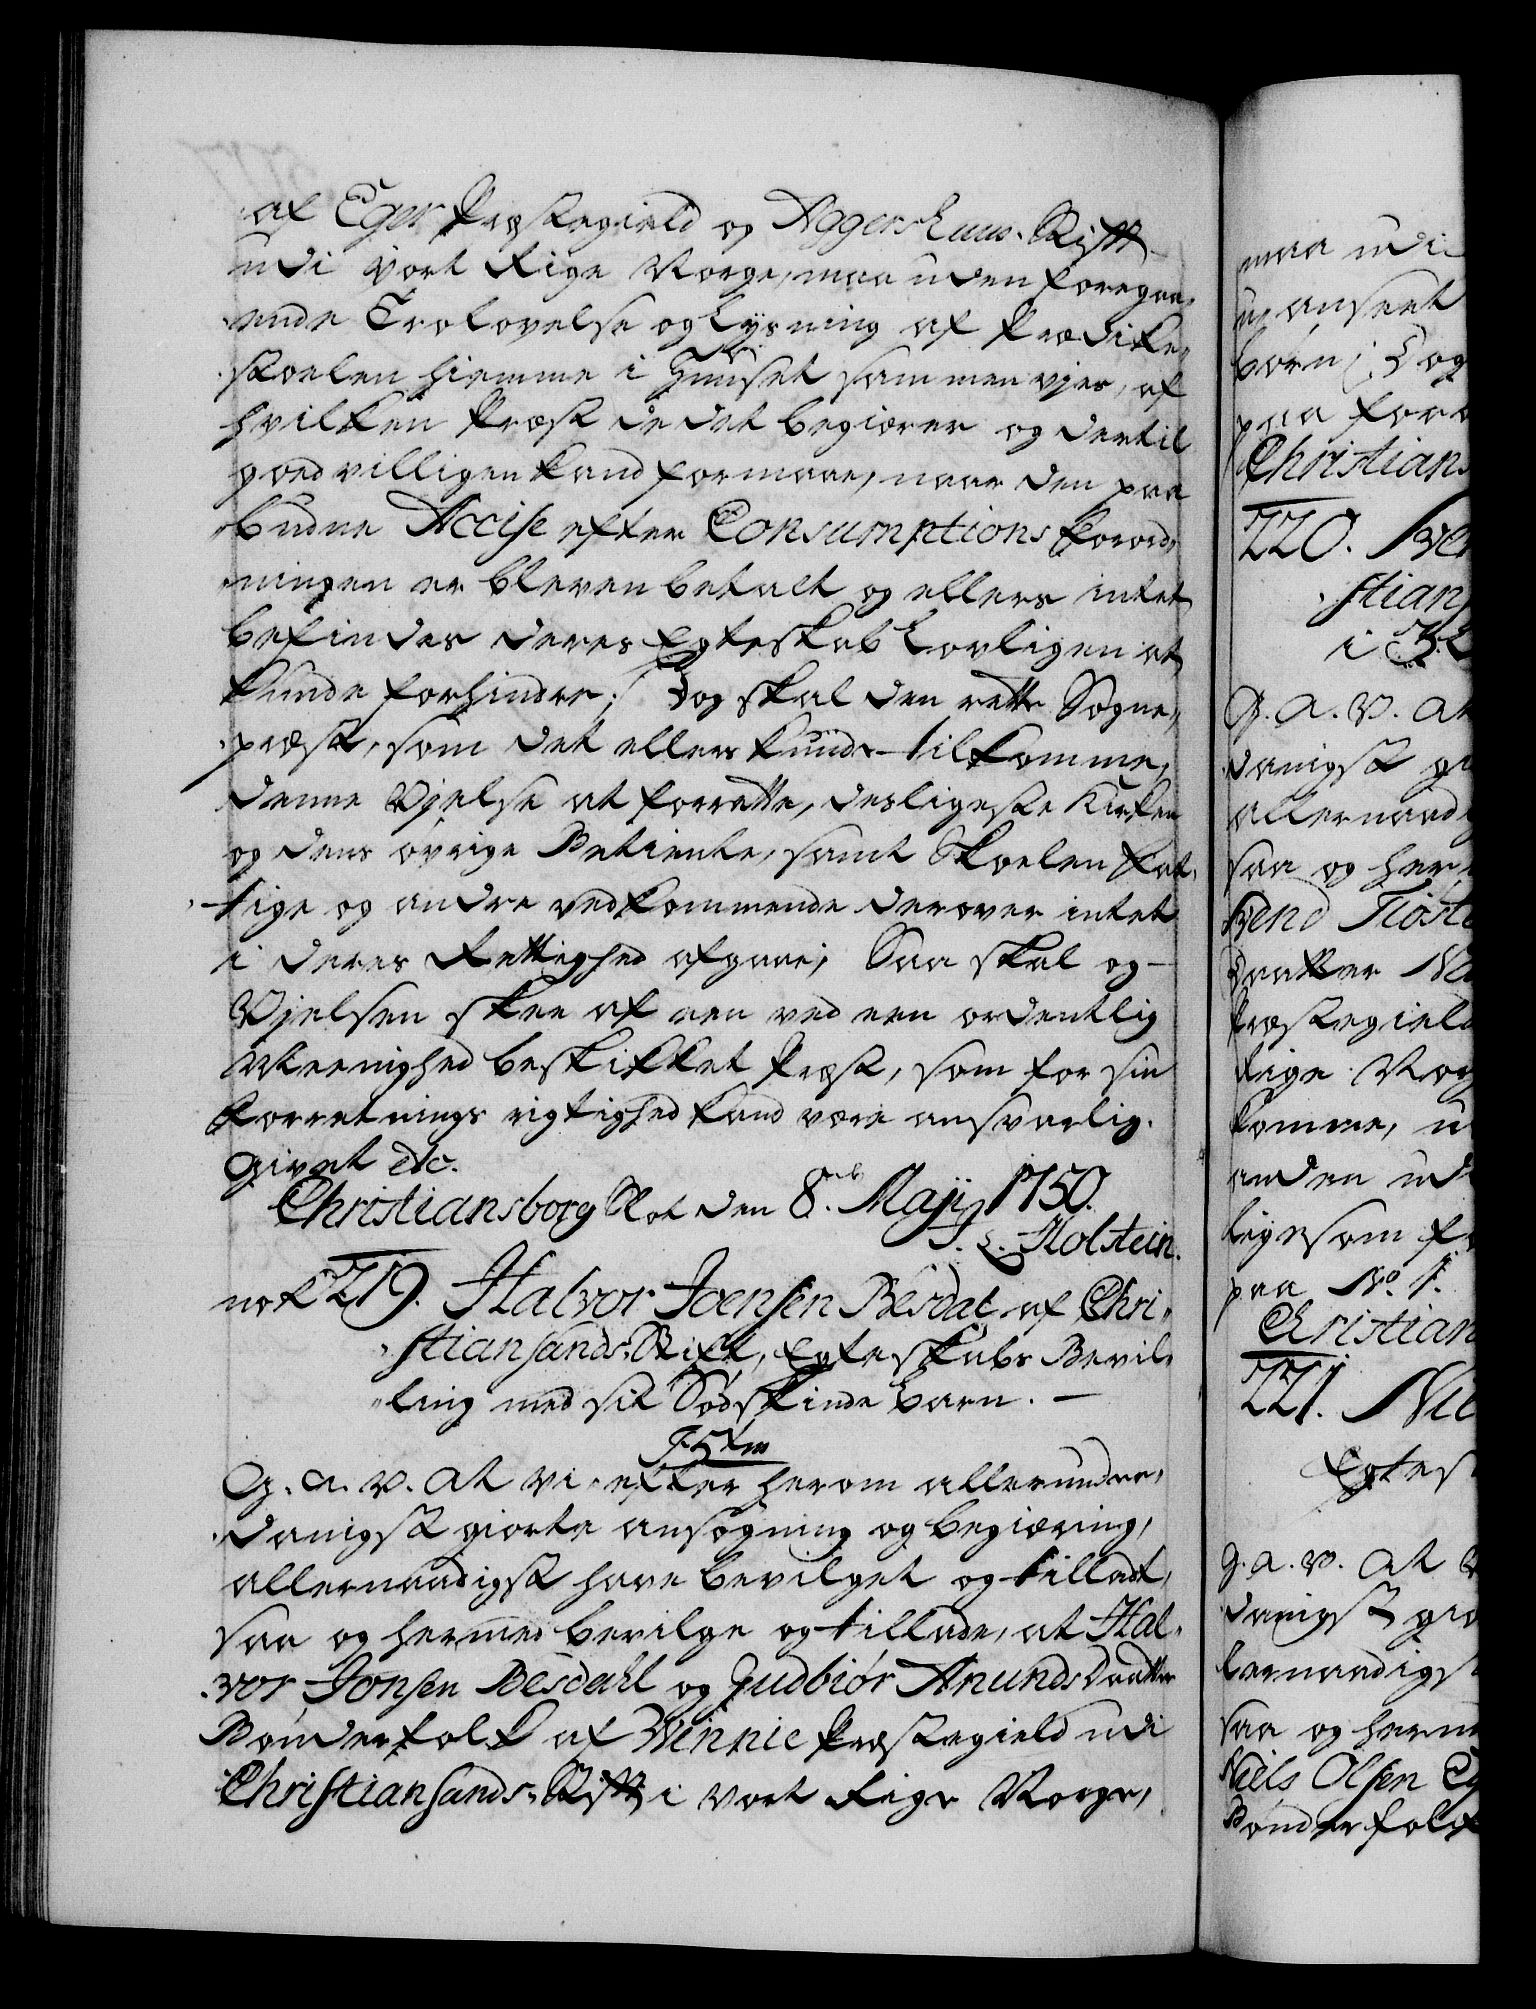 af Eger Præstegield og Aggershuus-Stift
udi Vort Rige Norge, maa uden foregaa-
ende Trolovelse og Lysning af Prædike-
stoelen hiemme i Huuset sammenvies, af
hvilken Præst de det begiærer og dertil
goedvilligen kand formaae, naar den paa
budne Accise efter Consumptions forord-
ningen er bleven betalt og ellers intet
befindes deres Egteskab Lovligen at
kunde forhindre; Dog skal den rette Sogne-
præst, som det ellers kunde tilkomme,
denne Vielse at forrette, desligeste Kirken
og dens øvrige Betiente, samt Skoelen Fat-
tige og andre vedkommende derover intet
i deres Rettighed afgaae; Saa skal og
Vielsen skee af een ved een ordentlig
Meenighed beskikket Præst, som for sin
Forretnings rigtighed kand være ansvarlig.
Givet etc.
Christiansborg Slot den 8. Maji 1750.
J. L. Holstein.
not 219. Halvor Joensen Besdal af Chri-
stiansands-Stift, Egteskabs Bevil-
ling med sit Sødskinde barn.
G. A. V. At Vi efter herom allerunder-
danigst giorte ansøgning og begiæring,
allernaadigst have bevilget og tilladt,
saa og hermed bevilge og tillade, at Hal-
vor Jonsen Besdahl og Gudbiör Anunds Daatter
Bønderfolk af Vinnie Præstegield udi
Christiansands-Stift i Vort Rige Norge,
maa udi
anseet
børn; Dog
paa for
Christians
220.
stian
i
G. A. V. At
danigst gi
allernaad
saa og her
Daatter
Præstegield
Rige Nor
komme, u
anden ud
ligesom f
paa No. 1.
Christian
221. Niel
Egtes
G. A. V. At V
danigst gio
lernaadigst
saa og herm
Niels Olsen
Bønderfolk